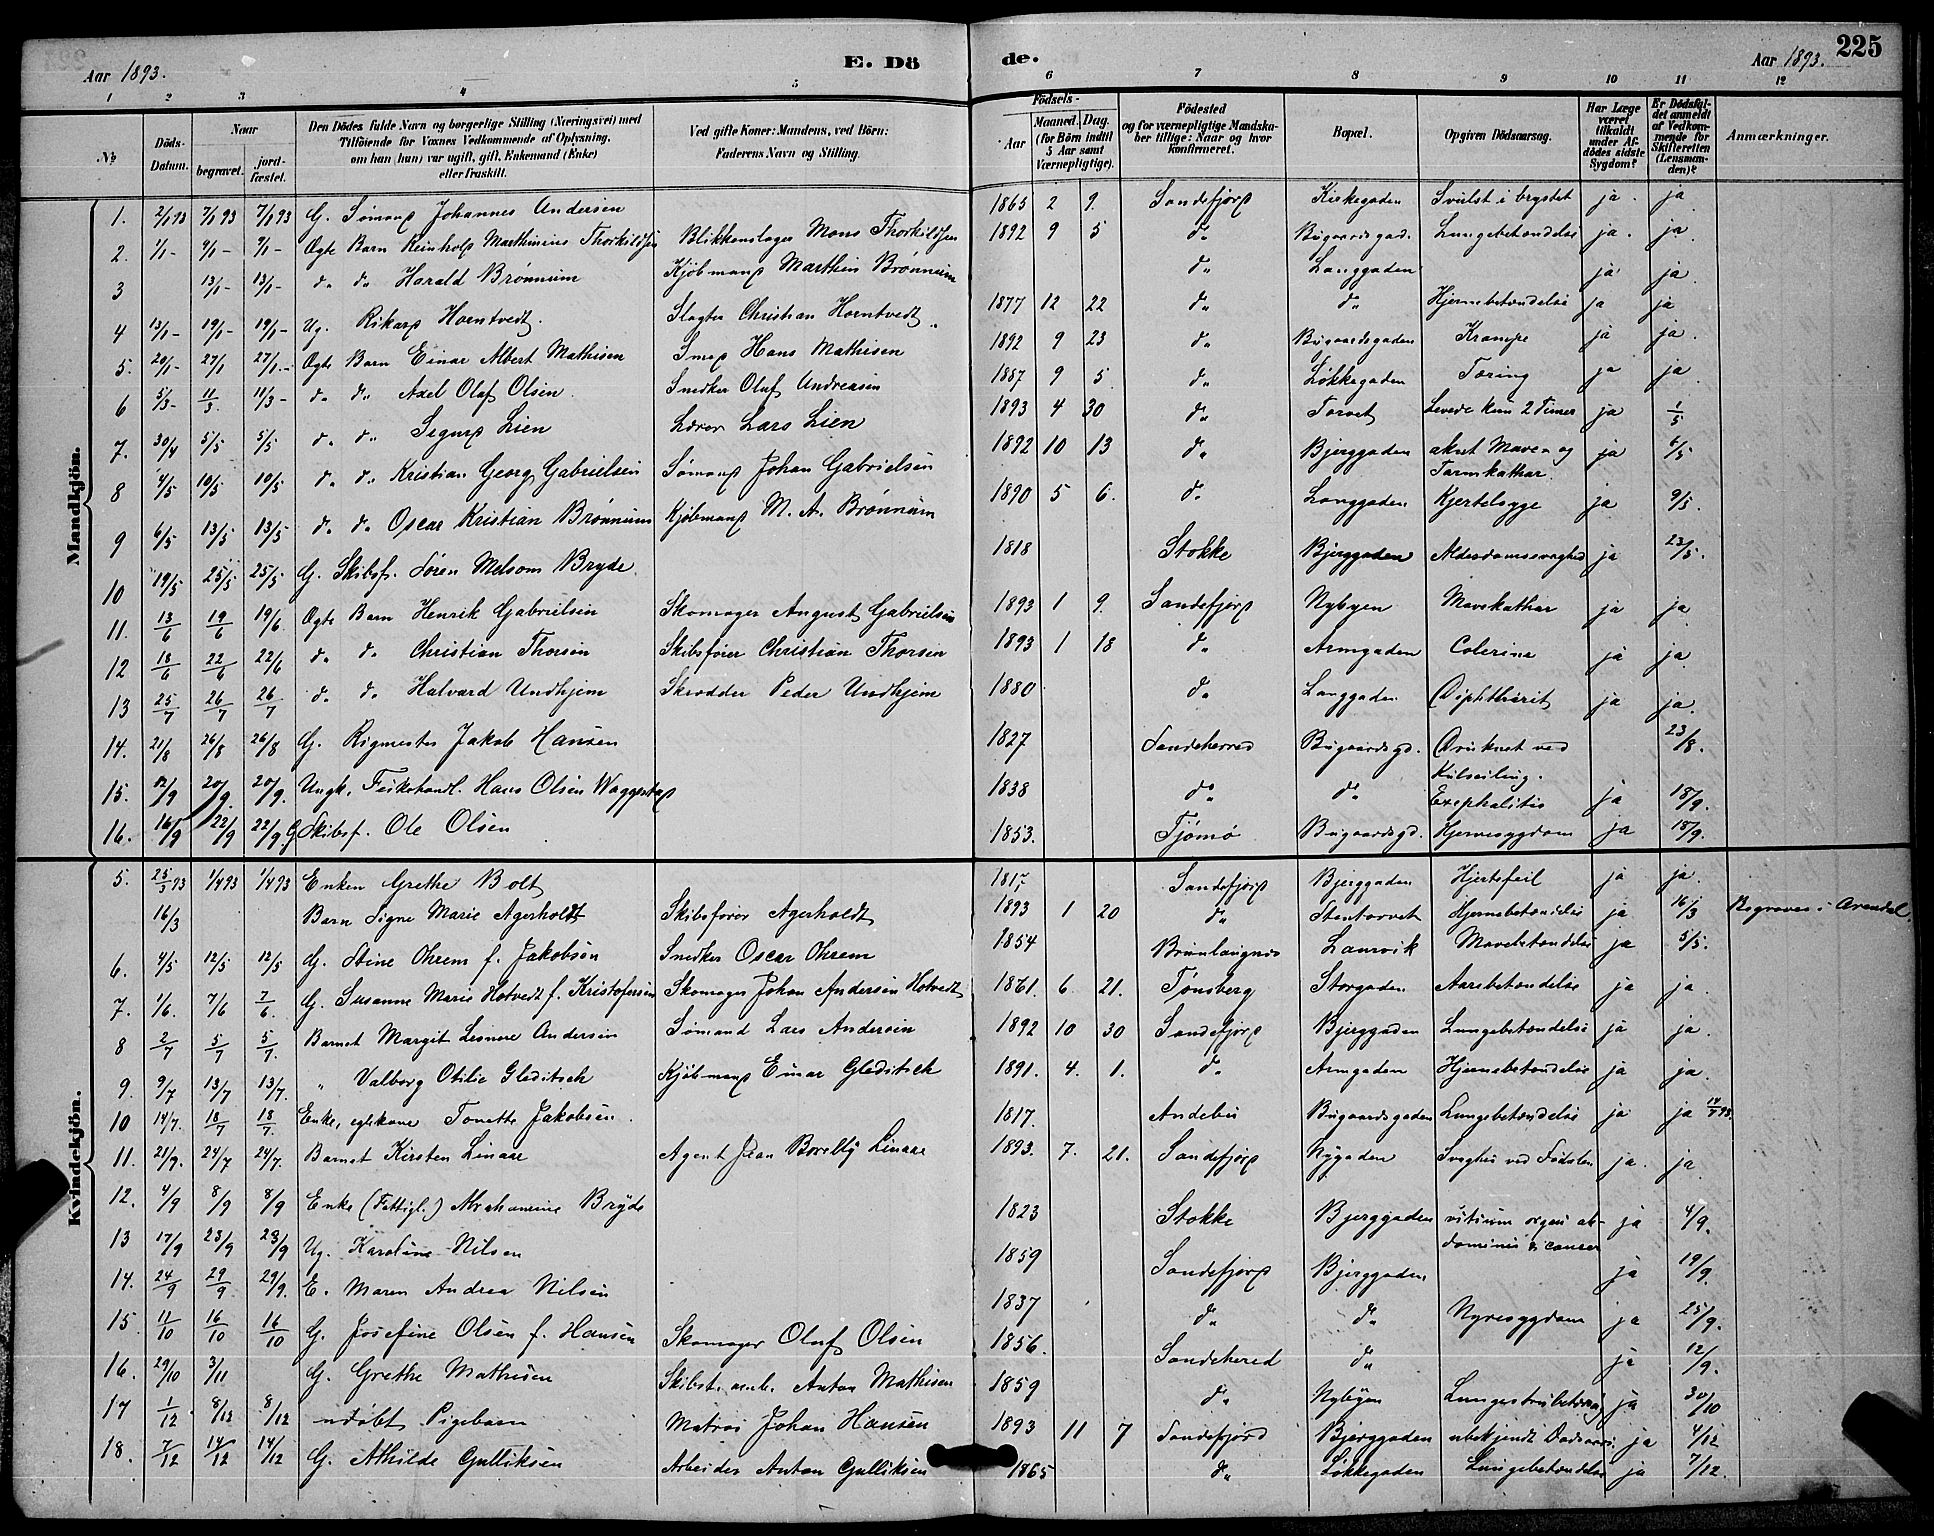 Aar 1893. E. Dö de. Aar 1893. 225
1 2 3 4 5 6 7 8 9 10 11 12
№ Döds-Datum. Naar begravet. jordfæstet. Den Dödes fulde Navn og borgerlige Stilling (Næringsvei) med Tilföiende for Voxnes Vedkommende af Oplysning, om han (hun) var ugift, gift, Enkemand (Enke) eller fraskilt. Ved gifte Koner: Mandens, ved Börn: Faderens Navn og Stilling. Födsels- Aar Maaned. Dag. (for Börn indtil 5 Aar samt Værnepligtige). Födested og for værnepligtige Mandskaber tillige: Naar og hvor konfirmeret. Bopæl. Opgiven Dödsaarsag. Har Læge været tilkaldt under Afdödes sidste Sygdom? Er Dödsfaldet anmeldt af Vedkommende for Skifteretten (Lensmanden)? Anmærkninger.
Mandkjön.
1. 2/1 93 7/1 93 7/1 93 G. Sømand Johannes Andersen 1865 2 9 Sandefjord Kirkegaden Svulst i brystet ja ja
2. 1/1 - 9/1 - 9/1 - Ægte Barn Reinhold Marthinius Thorkildsen Blikkenslager Mons Thorkildsen 1892 9 5 do Bugaardsgad. Lungebetændelse ja. ja.
3 13/1 - 13/1 - do do Harald Brønnum Kjøbmand Marthin Brønnum do Langgaden ja ja
4 13/1 - 19/1 - 19/1 - Ug. Rikard Horntvedt. Slagter Christian Horntvedt 1877 12 22 do do Hjernebetændelse ja ja
5. 20/1 - 27/1 27/1 - Ægte Barn Einar Albert Mathisen Smed Hans Mathisen 1892 9 23 do Bugaardsgaden Krampe ja ja.
6 5/3 - 11/3. 11/3 - do do Axel Olaf Olsen Snedker Oluf Andreasen 1887 9 5. do Løkkegaden Tæring ja ja
7. 30/4 5/5 5/5 do do Sigurd Lien Lærer Lars Lien 1893 4 30 do Torvet Levede kun 2 Timer ja 1/5
8 4/5 10/5 10/5 do do Kristian Georg Gabrielsen Sømand Johan Gabrielsen 1892 10 13 do Bjerggaden akut Mave- og Tarmkathar. ja 6/5
9 6/5 13/5 13/5 do do Oscar Kristian Brønnum Kjøbmand M. A. Brønnum 1890 5 6. do Langgaden Kjertelsyge ja 9/5.
10 19/5 25/5 25/5 G. Skibsf. Søren Melsom Bryde. 1818 Stokke Bjerggaden Alderdomssvaghed ja 23/5.
11. 13/6 19/6 19/6 Ægte Barn Henrik Gabrielsen Skomager August Gabrielsen 1893 1 9. Sandefjord Nybyen Mavekathar ja ja
12 18/6 22/6 22/6 do do Christian Thorsen Skibsfører Christian Thorsen 1893 1 18 do Armgaden Colerine ja ja
13 25/7 26/7 26/7 do do Halvard Undhjem Skrædder Peder Undhjem 1880 do Langgaden Diphtherit ja ja.
14. 21/8 26/8 26/8 G. Rigmester Jakob Hansen 1827 Sandeherred Bugaardsgd. Druknet ved Kulseiling. 23/8.
15. 12/9 20/9. 20/9. Ungk. Fiskehandl. Hans Olsen Waggestad 1838 do do Encephalitis ja 18/9.
16. 16/9 22/9 22/9. G Skibsf. Ole Olsen 1853. Tjømø Bugaardsgd. Hjernesygdom ja 18/9.
Kvindekjön.
5. 25/3 93 1/4 93 1/4 93 Enken Grethe Bolt 1817, Sandefjord Bjerggaden Hjertefeil ja ja.
16/3 Barn Signe Marie Agerholdt Skibsfører Agerholdt 1893 1 20 do Stentorvet Hjernebetændelse ja 16/3 Begraves i Arendal.
6. 4/5 12/5 12/5 G. Stine Ohrem f. Jakobsen Snedker Oscar Ohrem 1854 Brunlangnæs Laurvik Mavebetændelse ja 5/5.
7. 1/6. 7/6 7/6. G. Susanne Marie Hotvedt f. Kristofersen Skomager Johan Andersen Hotvedt 1861. 6. 21. Tønsberg Storgaden Aarebetændelse ja ja
8 2/7 5/7 5/7. Barnet Margit Andersen Sømand Lars Andersen 1892 10 30 Sandefjord Bjerggaden Lungebetændelse ja ja.
9. 9/7 13/7 13/7. " Valborg Otilie Gleditsch Kjøbmand Einar Gleditsch 1891. 4. 1. do Armgaden Hjernebetændelse ja ja.
10 14/7. 18/7 18/7. Enke, eglekone Tonette Jakobsen. 1817. Andebu Bugaardsgaden Lungebetændelse ja ja 14/7 93
11. 21/9. 24/7 24/7. Barnet Kirsten Linaae Agent Jean Borelly Linaae 1893. 7. 21. Sandefjord Nygaden Svaghed ved Fødslen ja. ja
12. 4/9 8/9 8/9 Enke (Fattigl.) Abrahamine Bryde 1823 Stokke Bjerggaden vitium organ abdominis & cancer ja 4/9.
13 17/9 23/9 23/9 Ug. Karoline Nilsen 1859 Sandefjord Bjerggaden ja 19/9.
14. 24/9 29/9. 29/9. E. Maren Andrea Nilsen 1837 do do Nyresygdom ja 25/9.
15 11/10 16/10 16/10 G. Josefine Olsen f. Hansen Skomager Oluf Olsen 1856. Sandeherred do ja 12/9.
16. 29/10 3/11 G. Grethe Mathisen Skibst. Anton Mathisen 1859 do Nybyen ja 30/10
17 1/12 8/12 8/12 udøbt Pigebarn Matros Johan Hansen 1893 11 7 Sandefjord Bjerggaden ubekjendt Dødsaars. ja 4/12
18. 7/12 14/12 14/12 G. Athilde Gulliksen Arbeider Anton Gulliksen 1865 do Løkkegaden Lungebetændelse ja 7/12.